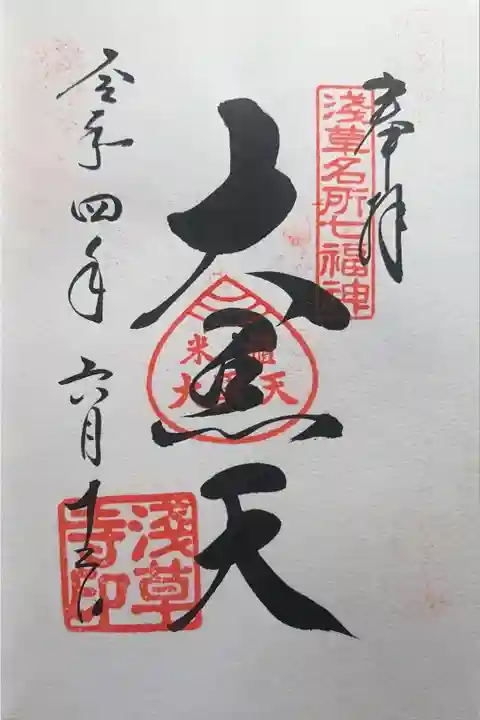 奉拝
浅草名所七福神
大黒天
米
大黒天
令和四年六月十三日
浅草
寺印